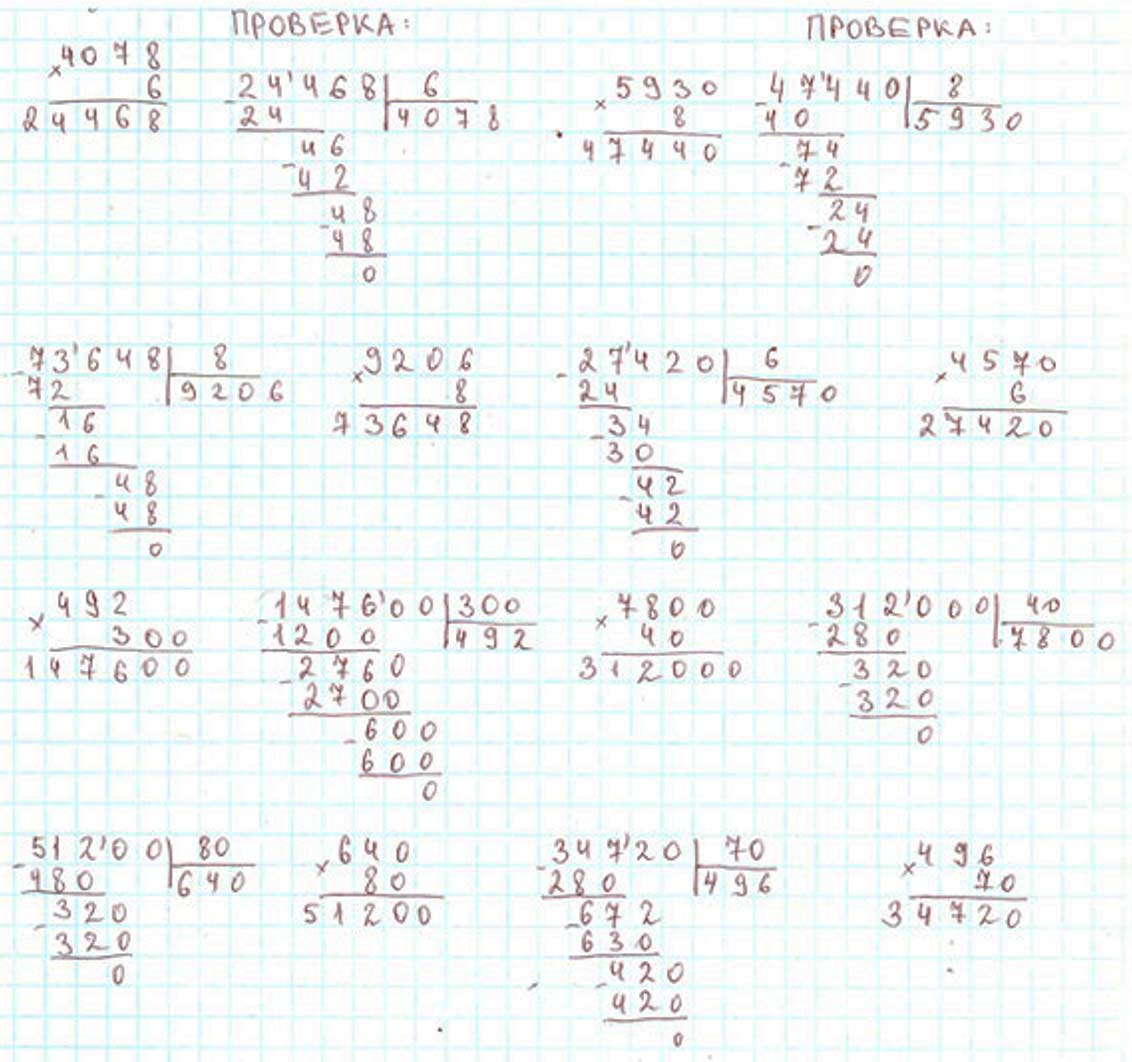 ПРОВЕРКА: ПРОВЕРКА:
×4078
6
24468
-24'468 | 6
24 | 4078
46
-42
48
-48
0
×5930
8
47440
-47'440 | 8
40 | 5930
74
-72
24
-24
0
-73'648 | 8
72 | 9206
16
-16
48
-48
0
×9206
8
73648
-27'420 | 6
24 | 4570
-34
30
42
-42
0
×4570
6
27420
×492
300
147600
-1476'00 | 300
1200 | 492
-2760
2700
-600
600
0
×7800
40
312000
-312'000 | 40
280 | 7800
-320
320
0
-512'00 | 80
480 | 640
-320
320
0
×640
80
51200
-347'20 | 70
280 | 496
-672
630
-420
420
0
×496
70
34720